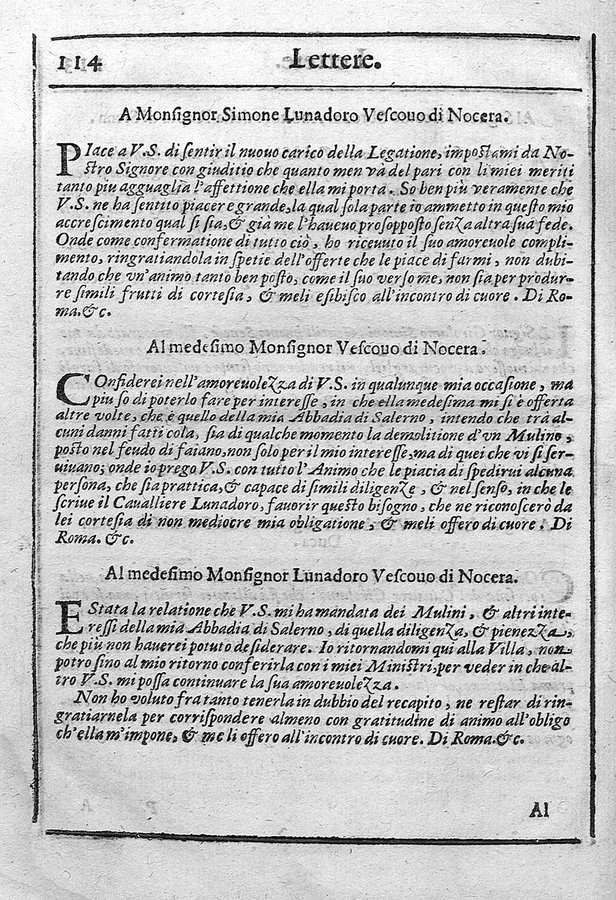 114 Lettere.
A Monſignor Simone Lunadoro Veſcouo di Nocera.
PIace a V.S. di ſentir il nuouo carico della Legatione, impoſtami da No-
ſtro Signore con giuditio che quanto men và del pari con li miei meriti
tanto più agguaglia l'affettione che ella mi porta. So ben più veramente che
V.S. ne ha ſentito piacere grande, la qual ſola parte io ammetto in queſto mio
accreſcimento qual ſi ſia, & già me l'haueuo proſoppoſto ſenza altra ſua fede.
Onde come confermatione di tutto ciò, ho riceuuto il ſuo amoreuole compli-
mento, ringratiandola in ſpetie dell'offerte che le piace di farmi, non dubi-
tando che vn'animo tanto ben poſto, come il ſuo verſo me, non ſia per produr-
re ſimili frutti di corteſia, & meli eſibiſco all'incontro di cuore. Di Ro-
ma.&c.
Al medeſimo Monſignor Veſcouo di Nocera.
COnfiderei nell'amoreuolezza di V.S. in qualunque mia occaſione, ma
più ſo di poterlo fare per intereſſe, in che ella medeſima mi ſi è offerta
altre volte, che è quello della mia Abbadia di Salerno, intendo che trà al-
cuni danni fatti cola, ſia di qualche momento la demolitione d'vn Mulino,
poſto nel feudo di faiano, non ſolo per il mio intereſſe, ma di quei che vi ſi ſer-
uiuano; onde io prego V.S. con tutto l'Animo che le piacia di ſpedirui alcuna
perſona, che ſia prattica, & capace di ſimili diligenze, & nel ſenſo, in che le
ſcriue il Caualliere Lunadoro, fauorir queſto biſogno, che ne riconoſcerò da
lei corteſia di non mediocre mia obligatione, & meli offero di cuore. Di
Roma. &c.
Al medeſimo Monſignor Lunadoro Veſcouo di Nocera.
E Stata la relatione che V.S. mi ha mandata dei Mulini, & altri inte-
reſſi della mia Abbadia di Salerno, di quella diligenza, & pienezza,
che più non hauerei potuto deſiderare. Io ritornandomi qui alla Villa, non
potrò ſino al mio ritorno conferirla con i miei Miniſtri, per veder in che al-
tro V.S. mi poſſa continuare la ſua amoreuolezza.
Non ho voluto fra tanto tenerla in dubbio del recapito, ne reſtar di rin-
gratiarnela per corriſpondere almeno con gratitudine di animo all'obligo
ch'ella m'impone, & me li offero all'incontro di cuore. Di Roma.&c.
Al